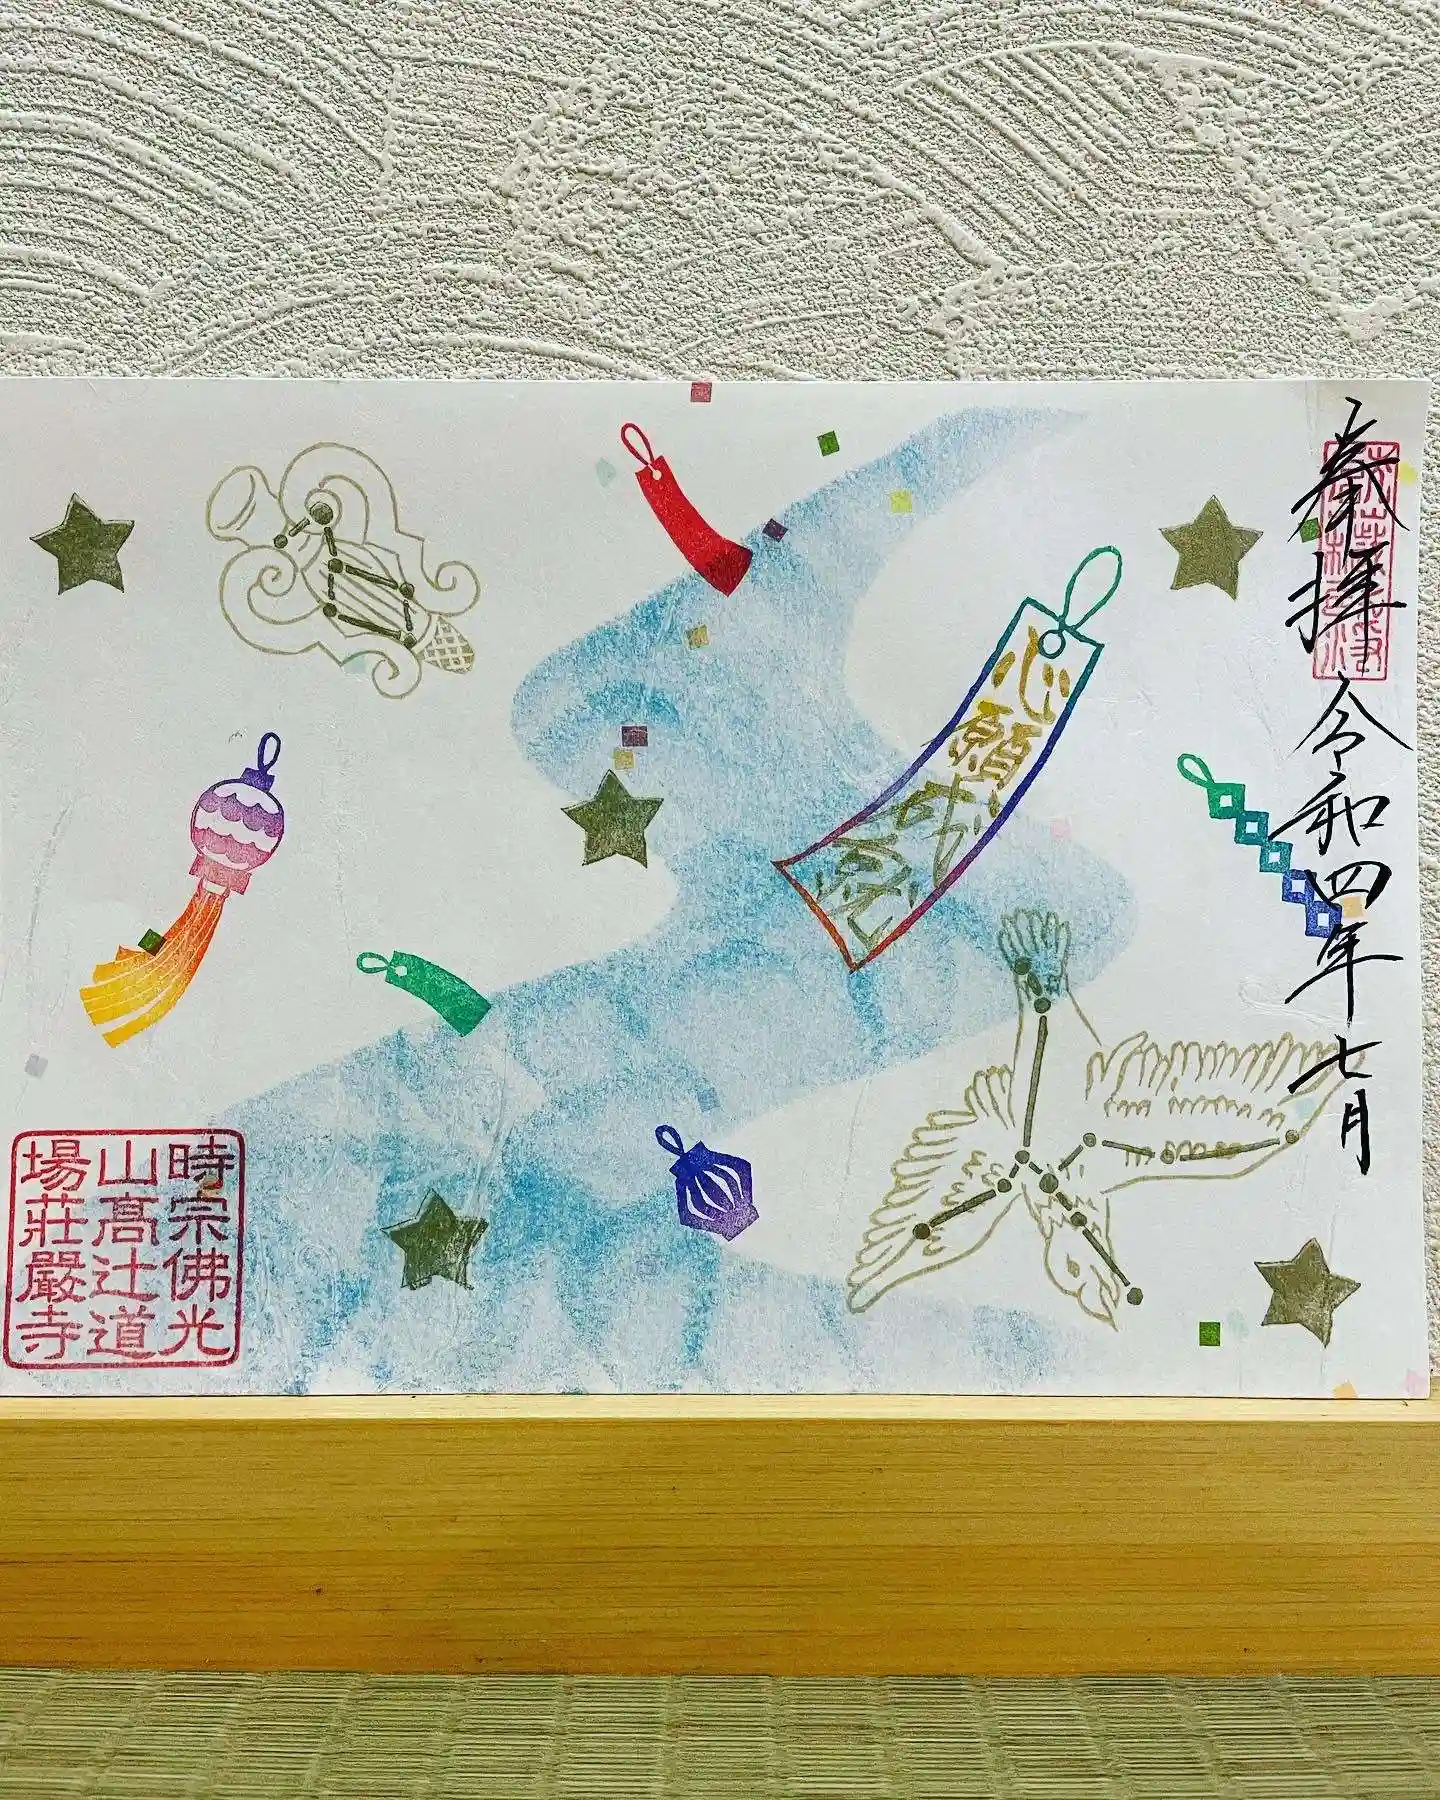 奉拝
令和四年七月
心願成就
時宗佛光
山高辻道
場荘嚴寺